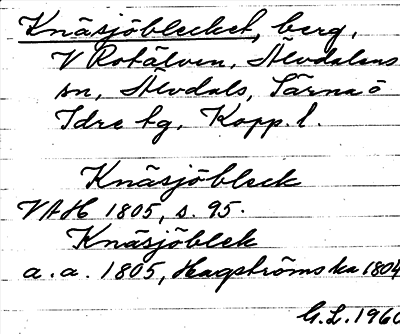 Knäsjöblecket, berg,
V Rotälven, Älvdalens
sn, Älvdals, Särna o
Idre tg, Kopp. l.
Knäsjöbleck
VAH 1805, s. 95.
Knäsjöblek
a. a. 1805, Hagströms ka 1804
G.L. 1960